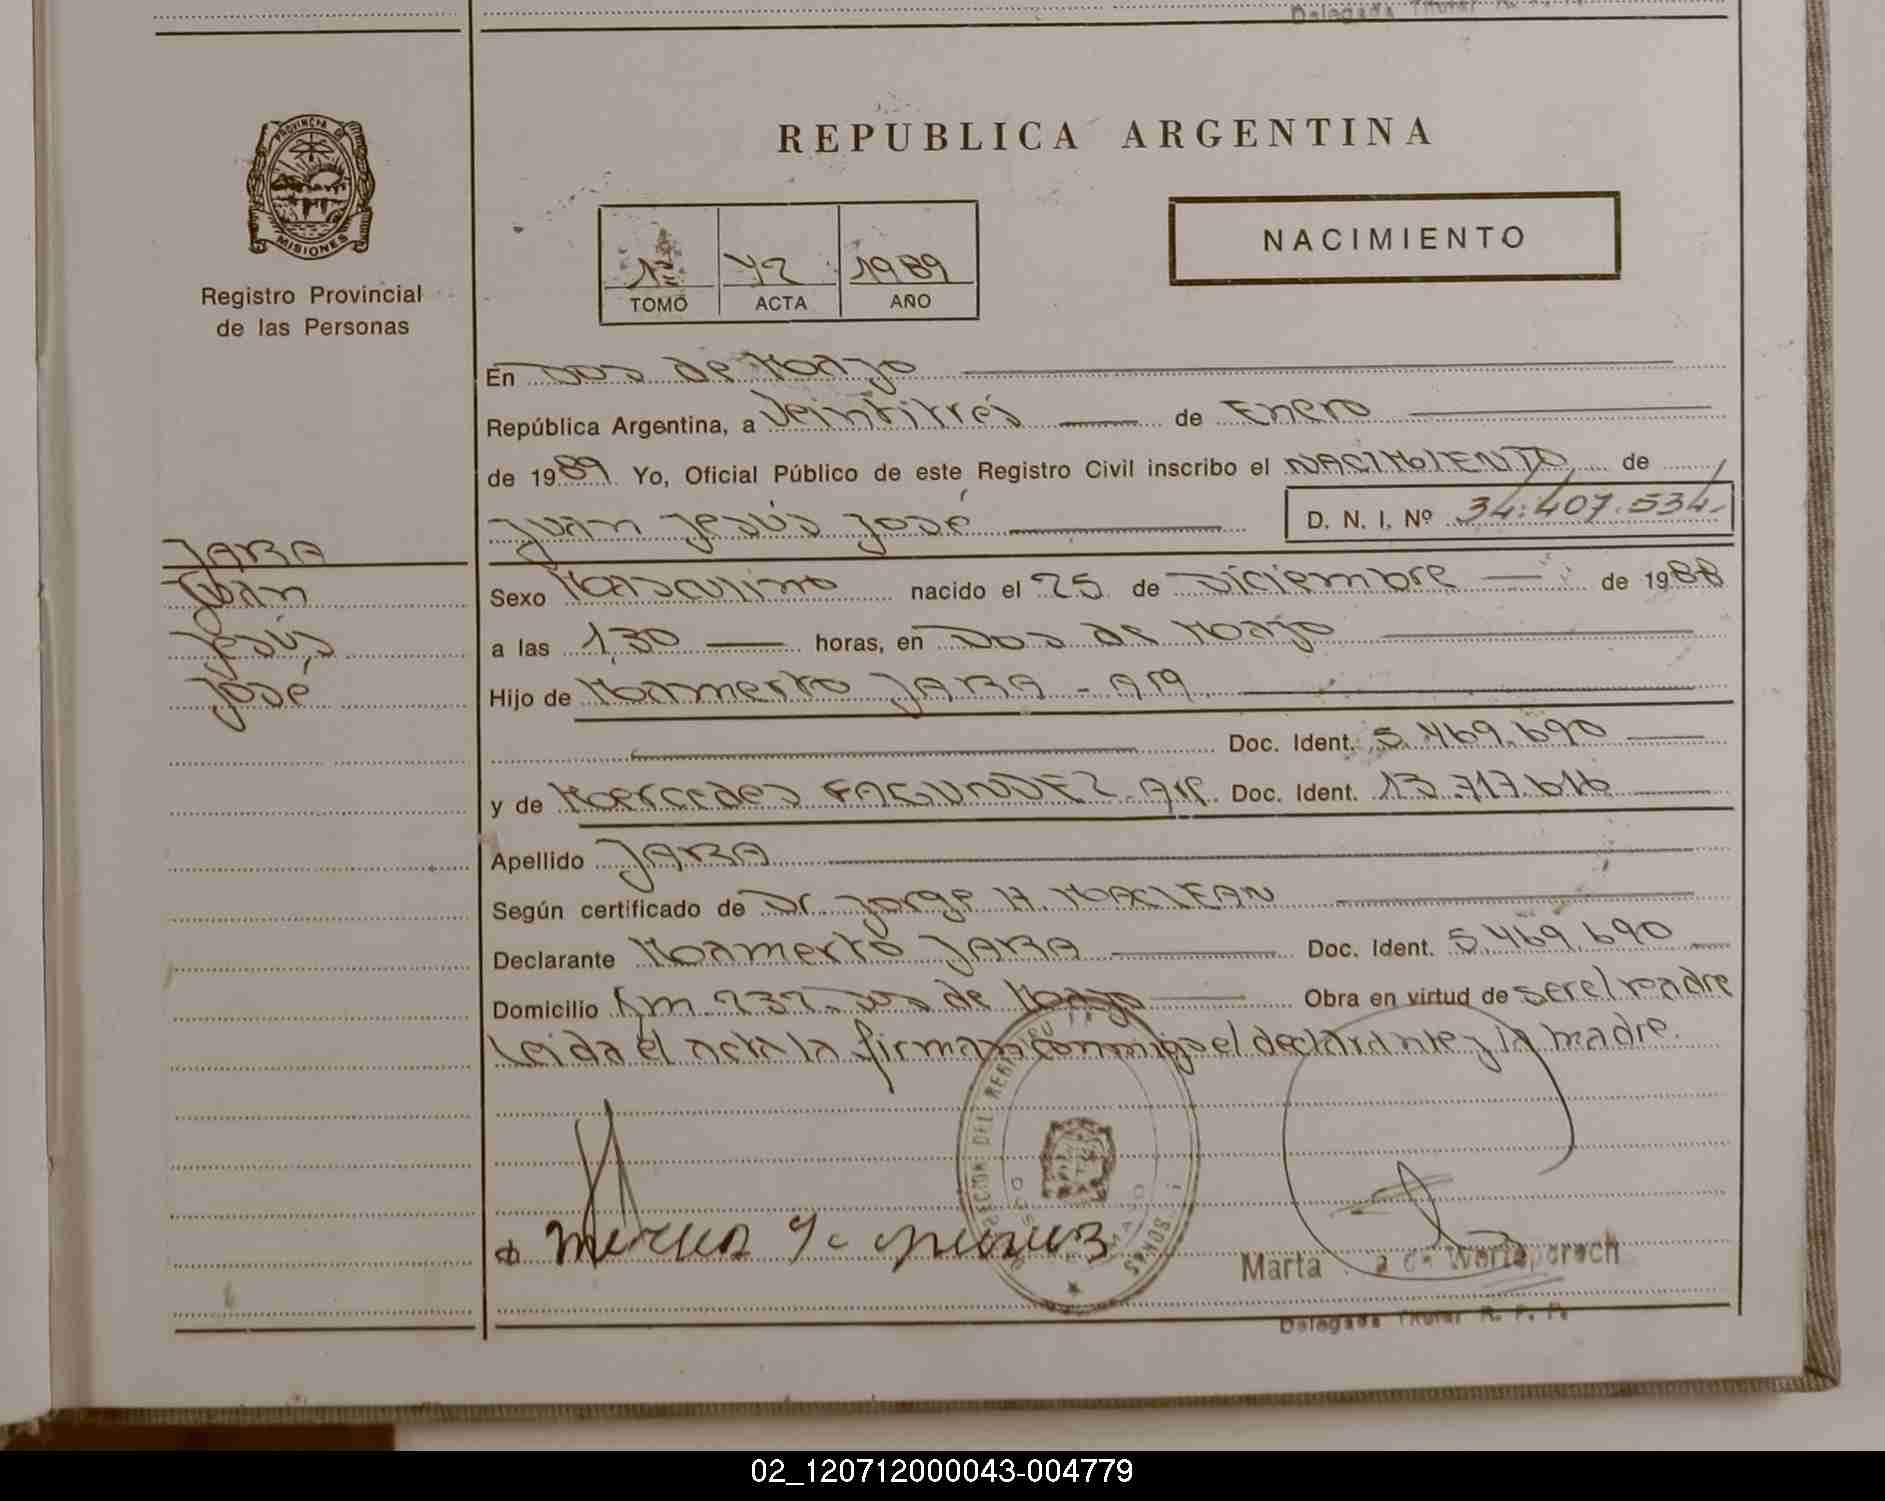 Delegada Titular R. P. P.
PROVINCIA DE
MISIONES
Registro Provincial
de las Personas
REPUBLICA ARGENTINA
NACIMIENTO
1º 42 1989
TOMO ACTA AÑO
En Dos de Mayo
República Argentina, a Veintitrés de Enero
de 1989 Yo, Oficial Público de este Registro Civil inscribo el NACIMIENTO de
Juan Jesús José D. N. I. Nº 34.407.534
JARA
Juan
Jesús
José
Sexo Masculino nacido el 25 de Diciembre de 1988
a las 1,30 horas, en Dos de Mayo
Hijo de Mamerto JARA - Arg.
Doc. Ident. 5.469.690
y de Mercedes FAGUNDEZ - Arg. Doc. Ident. 13.717.616
Apellido JARA
Según certificado de Dr. Jorge H. MACLEAN
Declarante Mamerto JARA Doc. Ident. 5.469.690
Domicilio Km. 232 - Dos de Mayo Obra en virtud de ser el padre
Leida el acta la firman conmigo el declarante y la madre.
Marta de
Delegada Titular R. P. P.
02_120712000043-004779